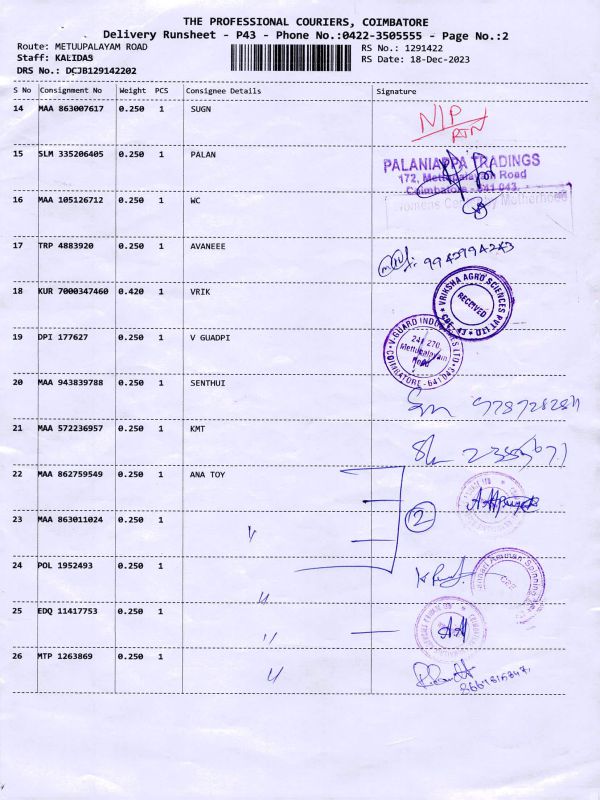 THE PROFESSIONAL COURIERS, COIMBATORE
Delivery Runsheet - P43 - Phone No.:0422-3505555 - Page No.:2
Route: METUUPALAYAM ROAD
RS No.: 1291422
Staff: KALIDAS
RS Date: 18-Dec-2023
DRS No.: DCJB129142202
S No Consignment No Weight PCS Consignee Details Signature
14 MAA 863007617 0.250 1 SUGN
N/P
RTN
15 SLM 335206405 0.250 1 PALAN
PALANIAPPA TRADINGS
172, Mettupalayam Road
Coimbatore - 641 043.
16 MAA 105126712 0.250 1 WC
Womens Motherhood
17 TRP 4883920 0.250 1 AVANEEE
9943994243
18 KUR 7000347460 0.420 1 VRIK
VRIKSHA AGRO SCIENCES PVT LTD
RECEIVED
CBE - 43
19 DPI 177627 0.250 1 V GUADPI
V-GUARD INDUSTRIES LTD.
Mettupalayam
Road
COIMBATORE - 641 043
20 MAA 943839788 0.250 1 SENTHUI
21 MAA 572236957 0.250 1 KMT
22 MAA 862759549 0.250 1 ANA TOY
2
23 MAA 863011024 0.250 1
24 POL 1952493 0.250 1
Amman Spinning
25 EDQ 11417753 0.250 1
26 MTP 1263869 0.250 1